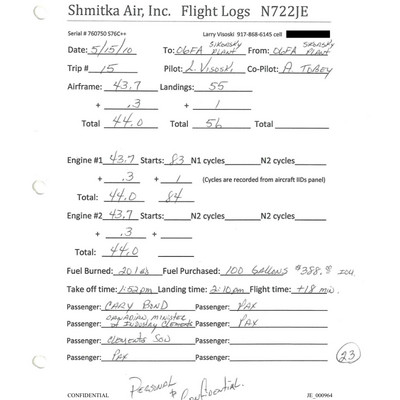 Shmitka Air, Inc. Flight Logs N722JE
Serial # 760750 S76C++ Larry Visoski 917-868-6145 cell
Date: 5/15/10 To: 06FA SIKORSKY PLANT From: 06FA SIKORSKY PLANT
Trip # 15 Pilot: L. VISOSKI Co-Pilot: A. TOBEY
Airframe: 43.7 Landings: 55
+ .3 + 1 +
Total 44.0 Total 56 Total
Engine #1 43.7 Starts: 83 N1 cycles N2 cycles
+ .3 + 1 (Cycles are recorded from aircraft IIDs panel)
Total: 44.0 84
Engine #2 43.7 Starts: N1 cycles N2 cycles
+ .3 +
Total: 44.0
Fuel Burned: 201 lbs Fuel Purchased: 100 GALLONS $388.
Take off time: 1:52pm Landing time: 2:10pm Flight time: +18 min.
Passenger: CARY BOND Passenger: PAX
Passenger: CANADIAN, MINISTER of INDUSTRY CLEMENTS Passenger: PAX
Passenger: CLEMENTS SON Passenger:
Passenger: PAX Passenger:
23
PERSONAL & Confidential.
CONFIDENTIAL JE_000964